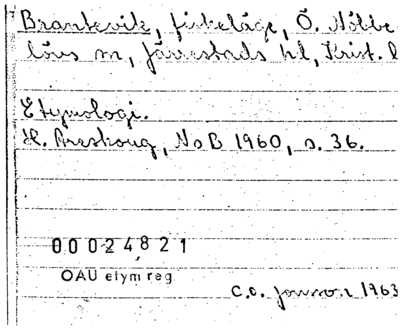 Brantevik, fiskeläge, Ö. Nöbbe
lövs sn, Järrestads hd, Krist. l
Etymologi.
H. Areskoug, NoB 1960, s. 36.
00024821
OAU etym reg.
C.O. Jonsson 1963